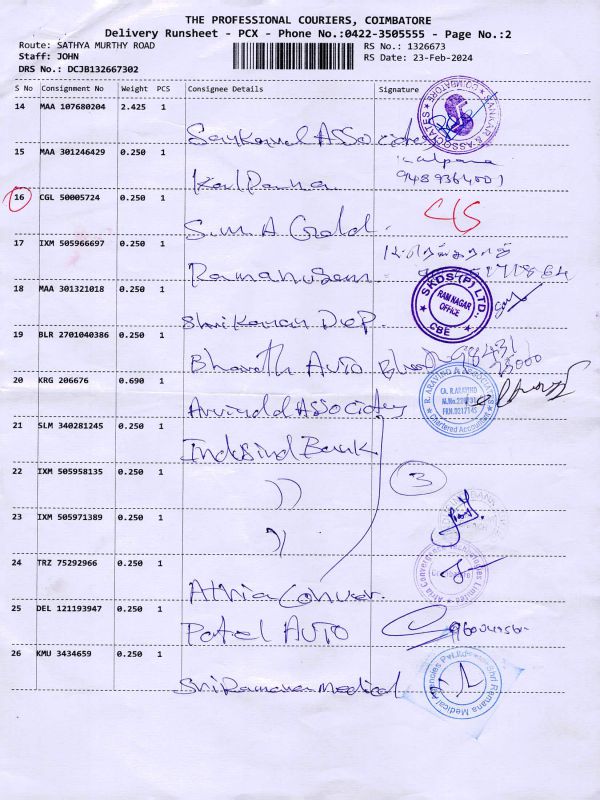 THE PROFESSIONAL COURIERS, COIMBATORE
Delivery Runsheet - PCX - Phone No.:0422-3505555 - Page No.:2
Route: SATHYA MURTHY ROAD RS No.: 1326673
Staff: JOHN RS Date: 23-Feb-2024
DRS No.: DCJB132667302
S No Consignment No Weight PCS Consignee Details Signature
14 MAA 107680204 2.425 1
SANKAR & ASSOCIATES COIMBATORE
Associates
15 MAA 301246429 0.250 1 Kalpana
Kalpana 9489364001
16 CGL 50005724 0.250 1
S.M.A Gold
17 IXM 505966697 0.250 1
Ramanujam
18 MAA 301321018 0.250 1
SKDS (P) LTD. RAM NAGAR OFFICE CBE
Shrikaman Dep
19 BLR 2701040386 0.250 1 98431
Bharath Auto 25000
20 KRG 206676 0.690 1
R. ARAVIND & ASSOCIATES CA. R.ARAVIND Chartered Accountant
Arvindd Associates
21 SLM 340281245 0.250 1
Indusind Bank
22 IXM 505958135 0.250 1 3
))
23 IXM 505971389 0.250 1
))
24 TRZ 75292966 0.250 1
Athia Conver.
25 DEL 121193947 0.250 1
Patel AUTO
26 KMU 3434659 0.250 1
Shri Ramana Medical Agencies Pvt.Ltd.
Sri Ramanan Medical